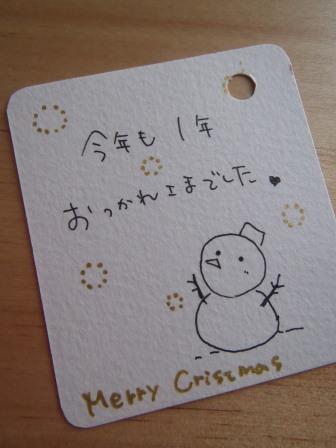 今年も 1年
おつかれさまでした♥
Merry Cristmas